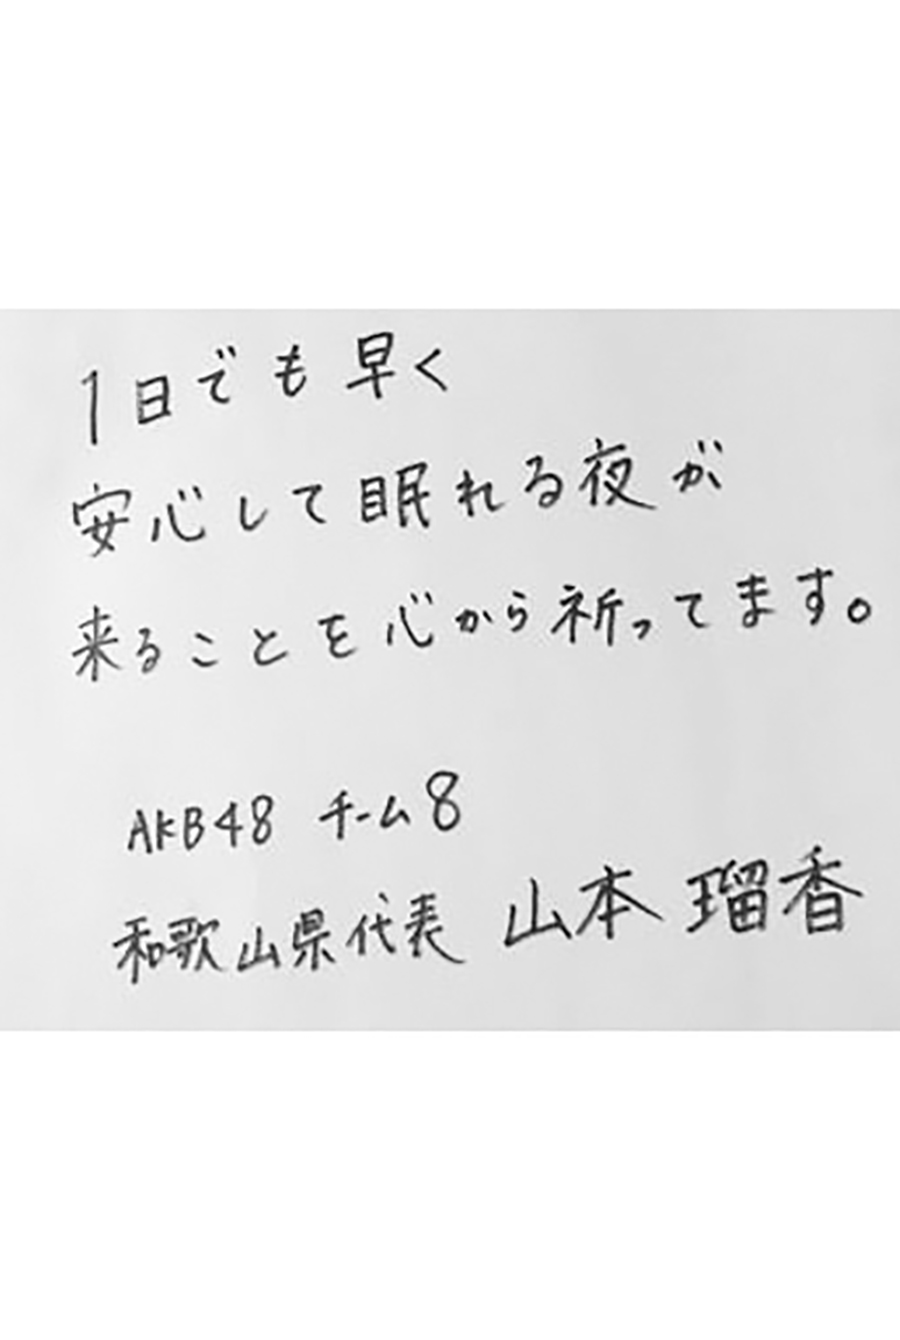 1日でも早く
安心して眠れる夜が
来ることを心から祈ってます。
AKB48 チーム8
和歌山県代表 山本 瑠香